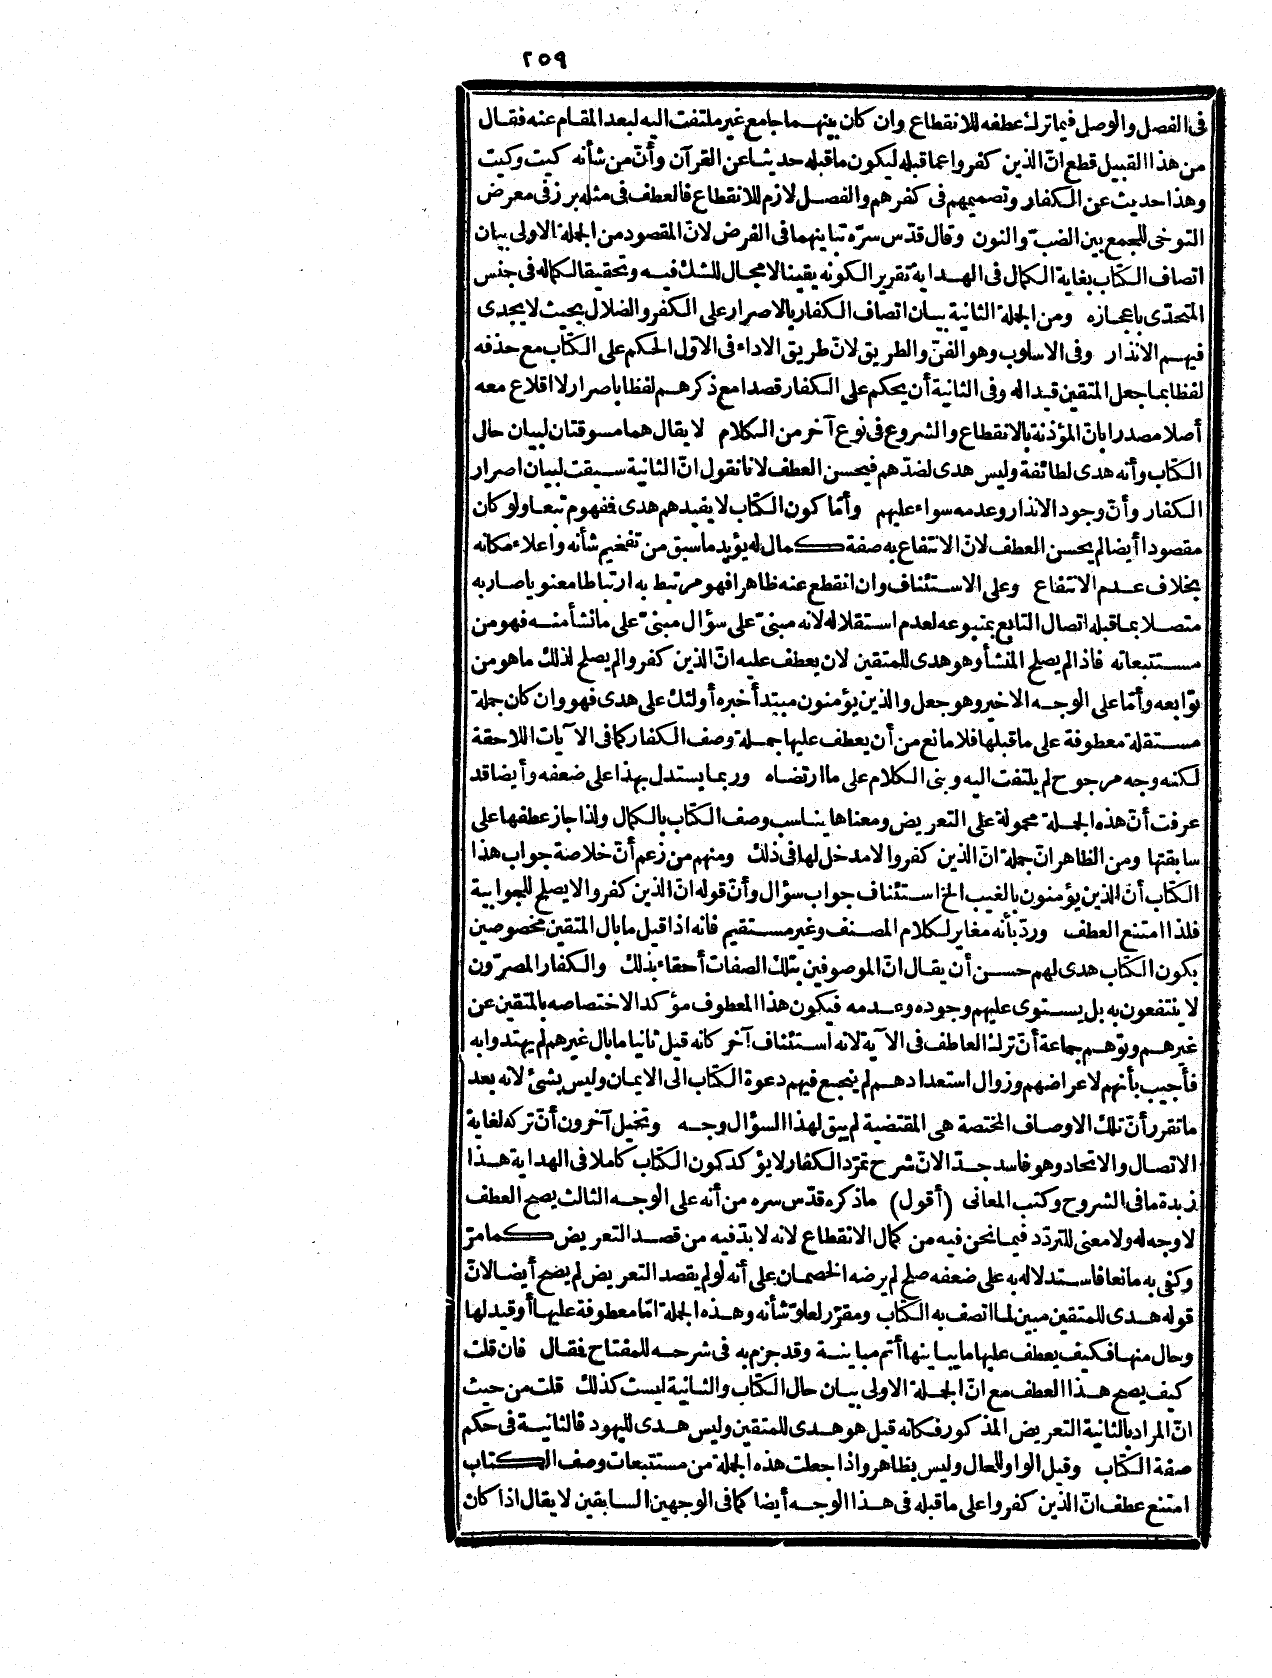 ٢٥٩
فى الفصل والوصل فيما ترك عطفه للانقطاع وان كان بينهما جامع غير ملتفت اليه لبعد المقام عنه فقال
من هذا القبيل قطع انّ الذين كفروا عما قبله ليكون ما قبله حديثا عن القرآن وأنّ من شأنه كيت وكيت
وهذا حديث عن الكفار وتصميمهم فى كفرهم والفصل لازم للانقطاع فالعطف فى مثله برز فى معرض
التوخى للجمع بين الضبّ والنون وقال قدّس سرّه تباينهما فى الغرض لانّ المقصود من الجملة الاولى بيان
اتصاف الكتاب بغاية الكمال فى الهداية تقريرا لكونه يقينا لا مجال للشك فيه وتحقيقا لكماله فى جنس
المتحدّى باعجازه ومن الجملة الثانية بيان اتصاف الكفار بالاصرار على الكفر والضلال بحيث لا يجدى
فيهم الانذار وفى الاسلوب وهو الفنّ والطريق لانّ طريق الاداء فى الاوّل الحكم على الكتاب مع حذفه
لفظا بما جعل المتقين قيدا له وفى الثانية أن يحكم على الكفار قصدا مع ذكرهم لفظا باصرار لا اقلاع معه
أصلا مصدرا بانّ المؤذنة بالانقطاع والشروع فى نوع آخر من الكلام لا يقال هما مسوقتان لبيان حال
الكتاب وأنه هدى لطائفة وليس هدى لضدّهم فيحسن العطف لانا نقول انّ الثانية سيقت لبيان اصرار
الكفار وأنّ وجود الانذار وعدمه سواء عليهم وأمّا كون الكتاب لا يفيدهم هدى فمفهوم تبعا ولو كان
مقصودا أيضا لم يحسن العطف لانّ الانتفاع به صفة كمال له يؤيد ما سبق من تفخيم شأنه واعلاء مكانه
بخلاف عدم الانتفاع وعلى الاستئناف وان انقطع عنه ظاهرا فهو مرتبط به ارتباطا معنويا صار به
متصلا بما قبله اتصال التابع بمتبوعه لعدم استقلاله لانه مبنىّ على سؤال مبنىّ على ما نشأ منه فهو من
مستتبعاته فاذا لم يصلح المنشأ وهو هدى للمتقين لان يعطف عليه انّ الذين كفروا لم يصلح لذلك ما هو من
توابعه وأمّا على الوجه الاخير وهو جعل والذين يؤمنون مبتدأ خبره أولئك على هدى فهو وان كان جملة
مستقلة معطوفة على ما قبلها فلا مانع من أن يعطف عليها جملة وصف الكفار كما فى الآيات اللاحقة
لكنه وجه مرجوح لم يلتفت اليه وبنى الكلام على ما ارتضاه وربما يستدل بهذا على ضعفه وأيضا قد
عرفت أنّ هذه الجملة محمولة على التعريض ومعناها يناسب وصف الكتاب بالكمال ولذا جاز عطفها على
سابقتها ومن الظاهر انّ جملة انّ الذين كفروا لا مدخل لها فى ذلك ومنهم من زعم أنّ خلاصة جواب هذا
الكتاب أنّ الذين يؤمنون بالغيب الخ استئناف جواب سؤال وأنّ قوله انّ الذين كفروا لا يصلح للجوابية
فلذا امتنع العطف وردّ بأنه مغاير لكلام المصنف وغير مستقيم فانه اذا قيل ما بال المتقين مخصوصين
بكون الكتاب هدى لهم حسن أن يقال انّ الموصوفين بتلك الصفات أحقاء بذلك والكفار المصرّون
لا ينتفعون به بل يستوى عليهم وجوده وعدمه فيكون هذا المعطوف مؤكدا لاختصاصه بالمتقين عن
غيرهم وتوّهم جماعة أنّ ترك العاطف فى الآية لانه استئناف آخر كانه قيل ثانيا ما بال غيرهم لم يهتدوا به
فأجيب بأنهم لاعراضهم وزوال استعدادهم لم ينجع فيهم دعوة الكتاب الى الايمان وليس بشئ لانه بعد
ما تقرر أنّ تلك الاوصاف المختصة هى المقتضية لم يبق لهذا السؤال وجه وتخيل آخرون أنّ تركه لغاية
الاتصال والاتحاد وهو فاسد جدّا لانّ شرح تمرّد الكفار لا يؤكد كون الكتاب كاملا فى الهداية هذا
زبدة ما فى الشروح وكتب المعانى (أقول) ما ذكره قدّس سره من أنه على الوجه الثالث يصح العطف
لا وجه له ولا معنى للتردّد فيما نحن فيه من كمال الانقطاع لانه لا بدّ فيه من قصد التعريض كما مرّ
وكفى به مانعا فاستدلاله به على ضعفه صلح لم يرضه الخصمان على أنه لو لم يقصد التعريض لم يضح أيضا لانّ
قوله هدى للمتقين مبين لما اتصف به الكتاب ومقرّر لعلوّ شأنه وهذه الجملة امّا معطوفة عليها أو قيد لها
وحال منها فكيف يعطف عليها ما يباينها أتم مباينة وقد جزم به فى شرحه للمفتاح فقال فان قلت
كيف يصح هذا العطف مع انّ الجملة الاولى بيان حال الكتاب والثانية ليست كذلك قلت من حيث
انّ المراد بالثانية التعريض المذكور فكانه قيل هو هدى للمتقين وليس هدى لليهود فالثانية فى حكم
صفة الكتاب وقيل الواو للحال وليس بظاهر واذا جعلت هذه الجملة من مستتبعات وصف الكتاب
امتنع عطف انّ الذين كفروا على ما قبله فى هذا الوجه أيضا كما فى الوجهين السابقين لا يقال اذا كان